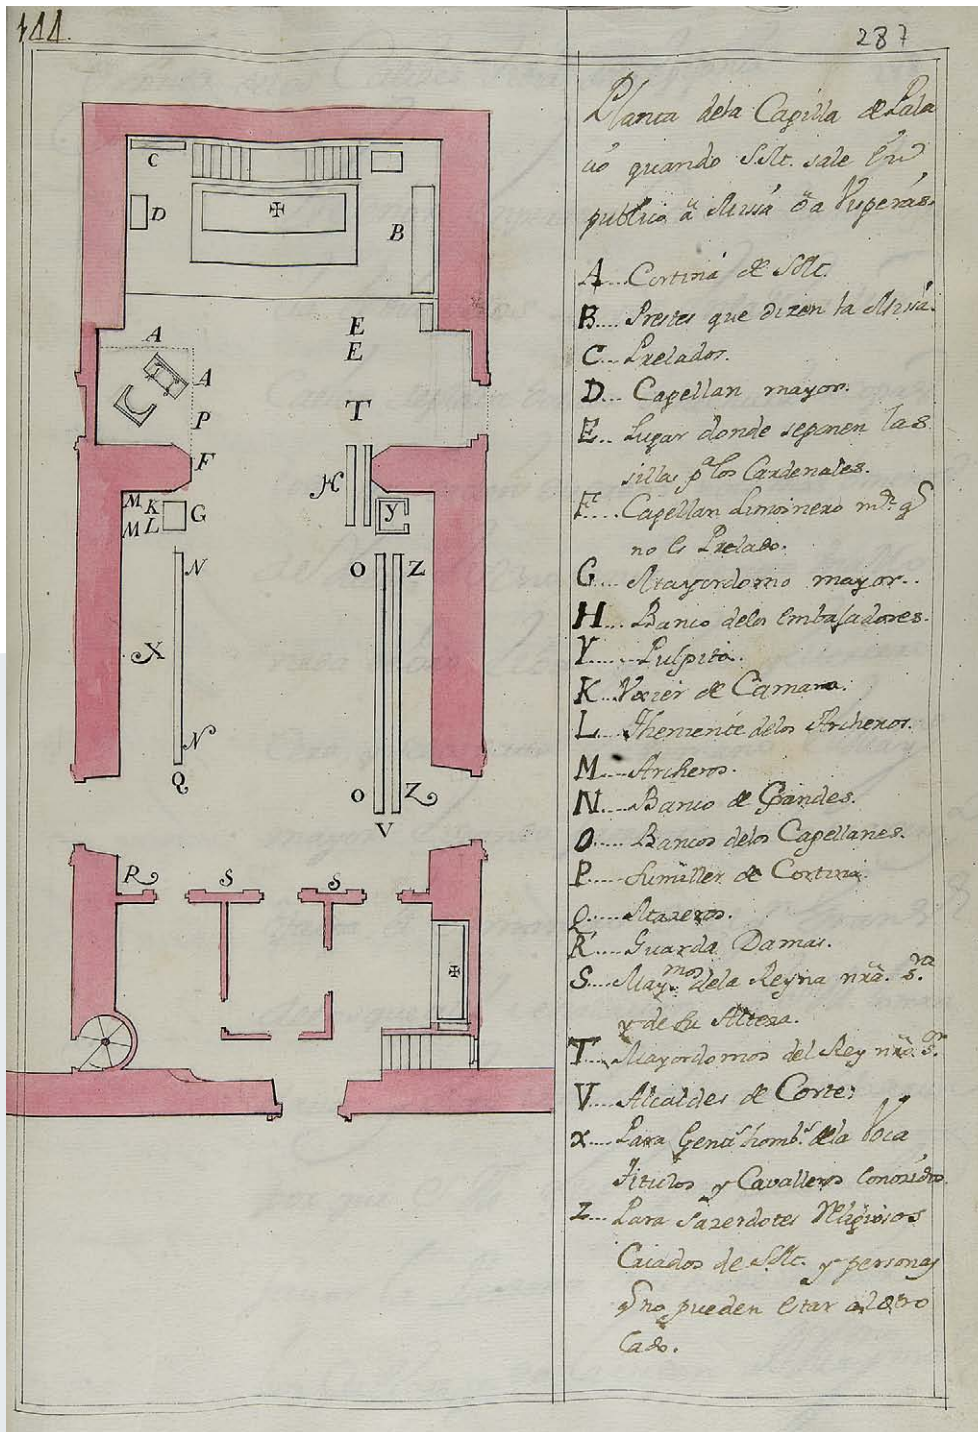 144.
287
Planta dela Capilla de Pala
cio quando S.Mt. sale en
publico â Missa ô a Visperas.
A.... Cortina de S.Mt.
B.... Prestes que dizen la Missa.
C... Prelados.
D... Capellan mayor.
E... Lugar donde seponen las
sillas pa los Cardenales.
F.... Capellan Limosnero mr. q
no es Prelado.
G.... Mayordomo mayor..
H.... Banco delos Embajadores.
Y...... Pulpito.
K... Vxier de Camara.
L.... Theniente delos Archeros.
M.... Archeros.
N.... Banco de Grandes.
O..... Bancos delos Capellanes.
P..... Sumiller de Cortina.
Q..... Mazeros.
R.... Guarda Damas.
S.... Maymos. dela Reyna nra. sra
y de su Alteza.
T.... Mayordomos del Rey nro. sr.
V.... Alcaldes de Corte:
X.... Para Gentshombs. dela Voca
Titulos y Cavalleros Conozidos.
Z... Para Sazerdotes Religiosos
Criados de S.Mt. y personas
q no pueden estar al otro
lado.
C
D
B
A
E
E
A
P
T
F
H
M K
M L
G
Y
N
O Z
X
N
Q
O Z
V
R S S